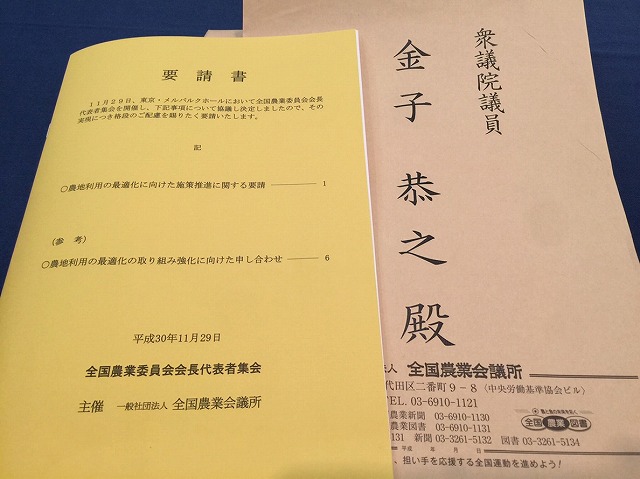 要請書
１１月２９日、東京・メルパルクホールにおいて全国農業委員会会長
代表者集会を開催し、下記事項について協議し決定しましたので、その
実現につき格段のご配慮を賜りたく要請いたします。
記
○農地利用の最適化に向けた施策推進に関する要請 ―――― 1
（参　考）
○農地利用の最適化の取り組み強化に向けた申し合わせ ―――― 6
平成30年11月29日
全国農業委員会会長代表者集会
主催　一般社団法人 全国農業会議所
衆議院議員
金子恭之殿
法人 全国農業会議所
代田区二番町９－８〈中央労働基準協会ビル〉
TEL. 03-6910-1121
農業新聞　03-6910-1130
農業図書　03-6910-1131
131　新聞 03-3261-5132　図書 03-3261-5134
全国農業図書
平成　年　月　日
、担い手を応援する全国運動を進めよう！